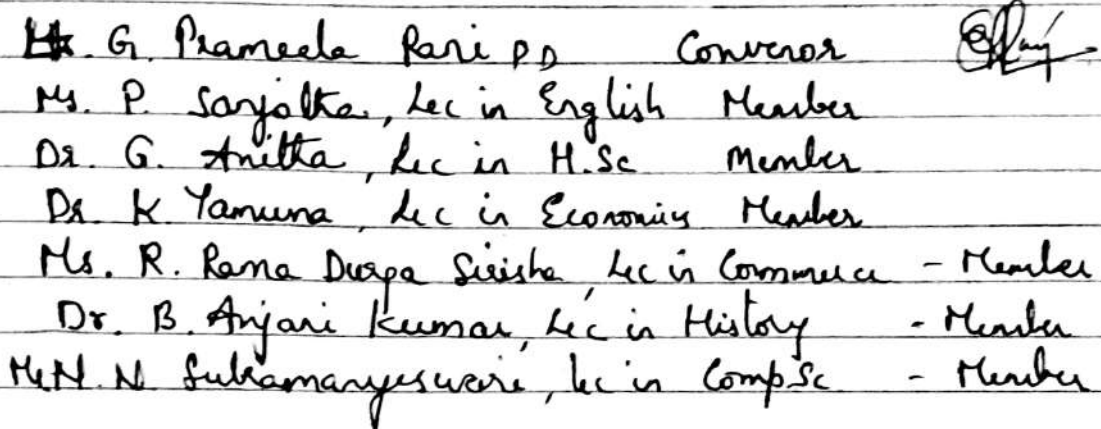 G. Prameela Rani PD Convenor
Ms. P. Sanjotha, Lec in English Member
Dr. G. Anitha, Lec in H.Sc Member
Dr. K Yamuna, Lec in Economics Member
Ms. R. Rama Durga Sirisha, Lec in Commerce - Member
Dr. B. Anjani Kumar, Lec in History - Member
N. Subramanyeswari, lec in Comp Sc - Member